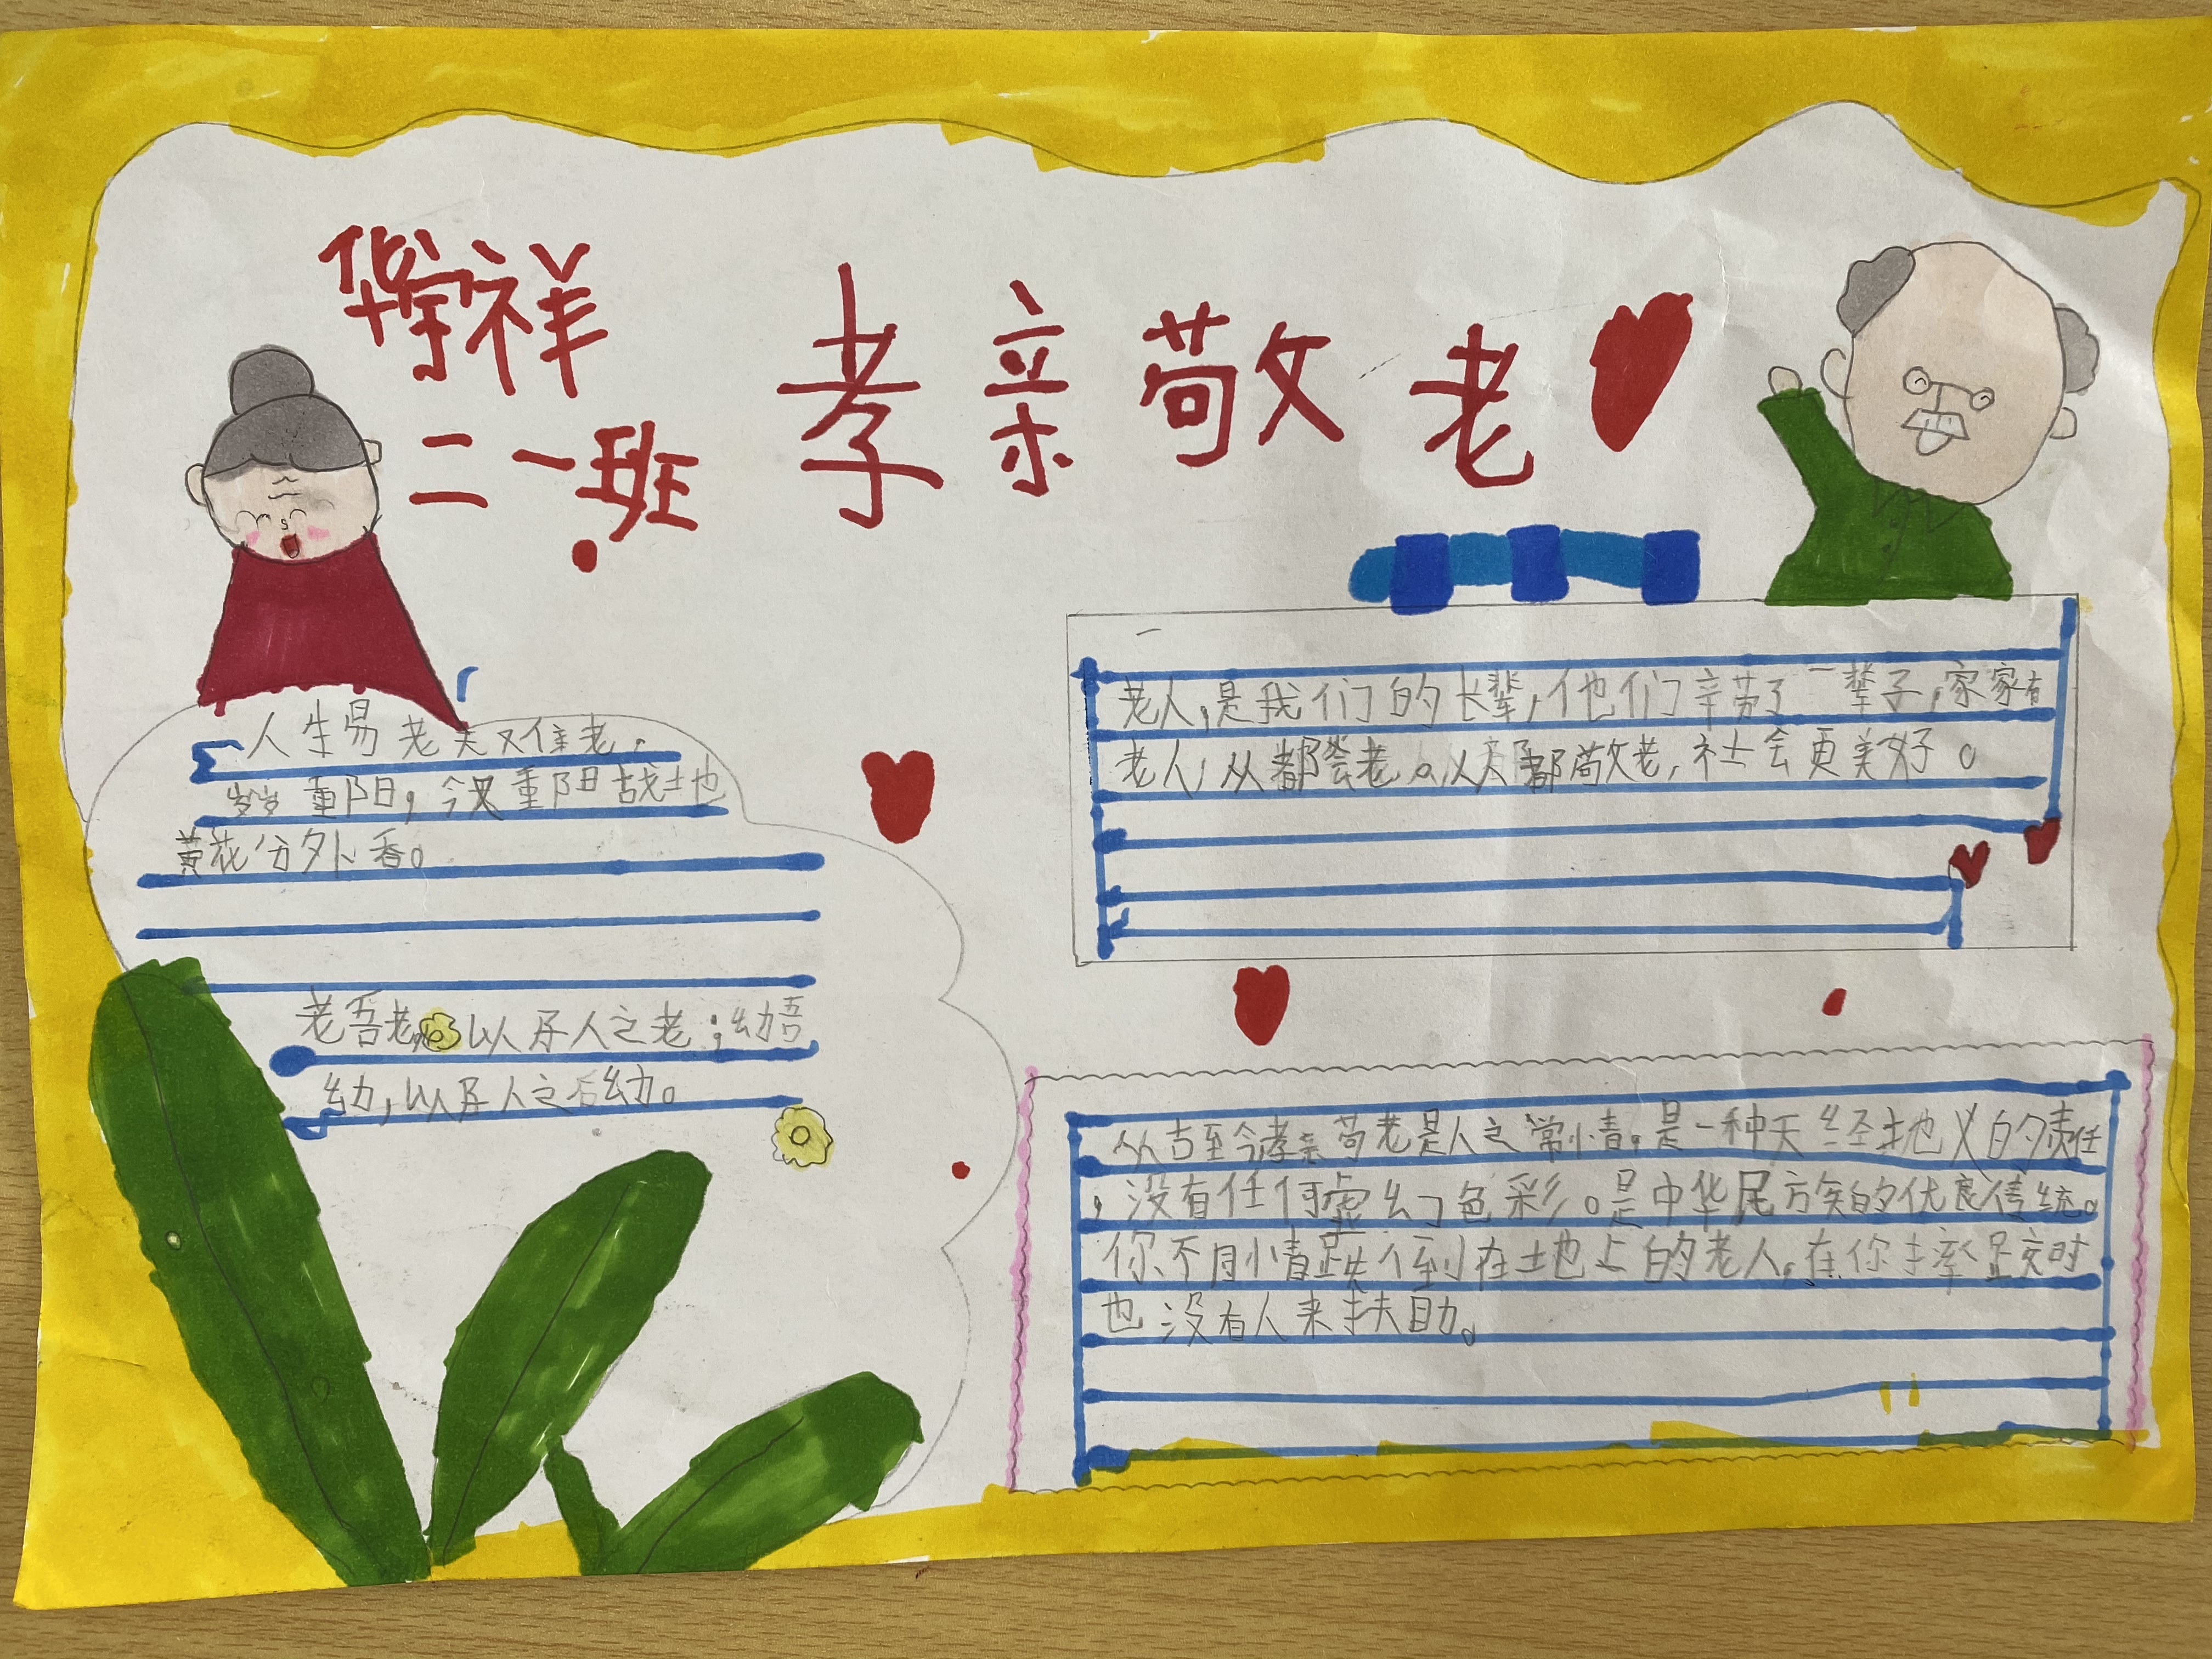 华宇祥
二一班
孝亲敬老
人生易老天难老，
岁岁重阳，今又重阳战地
黄花分外香。
老吾老以及人之老；幼吾
幼，以及人之幼。
老人，是我们的长辈，他们辛劳了一辈子，家家有
老人，从都会老。以大都敬老，社会更美好。
从古至今孝亲苟老是人之常情，是一种天经地义的责任
，没有任何虚幻色彩。是中华尾方族的优良传统。
你不同情跌倒在地上的老人，在你摔跤时
也没有人来扶助。